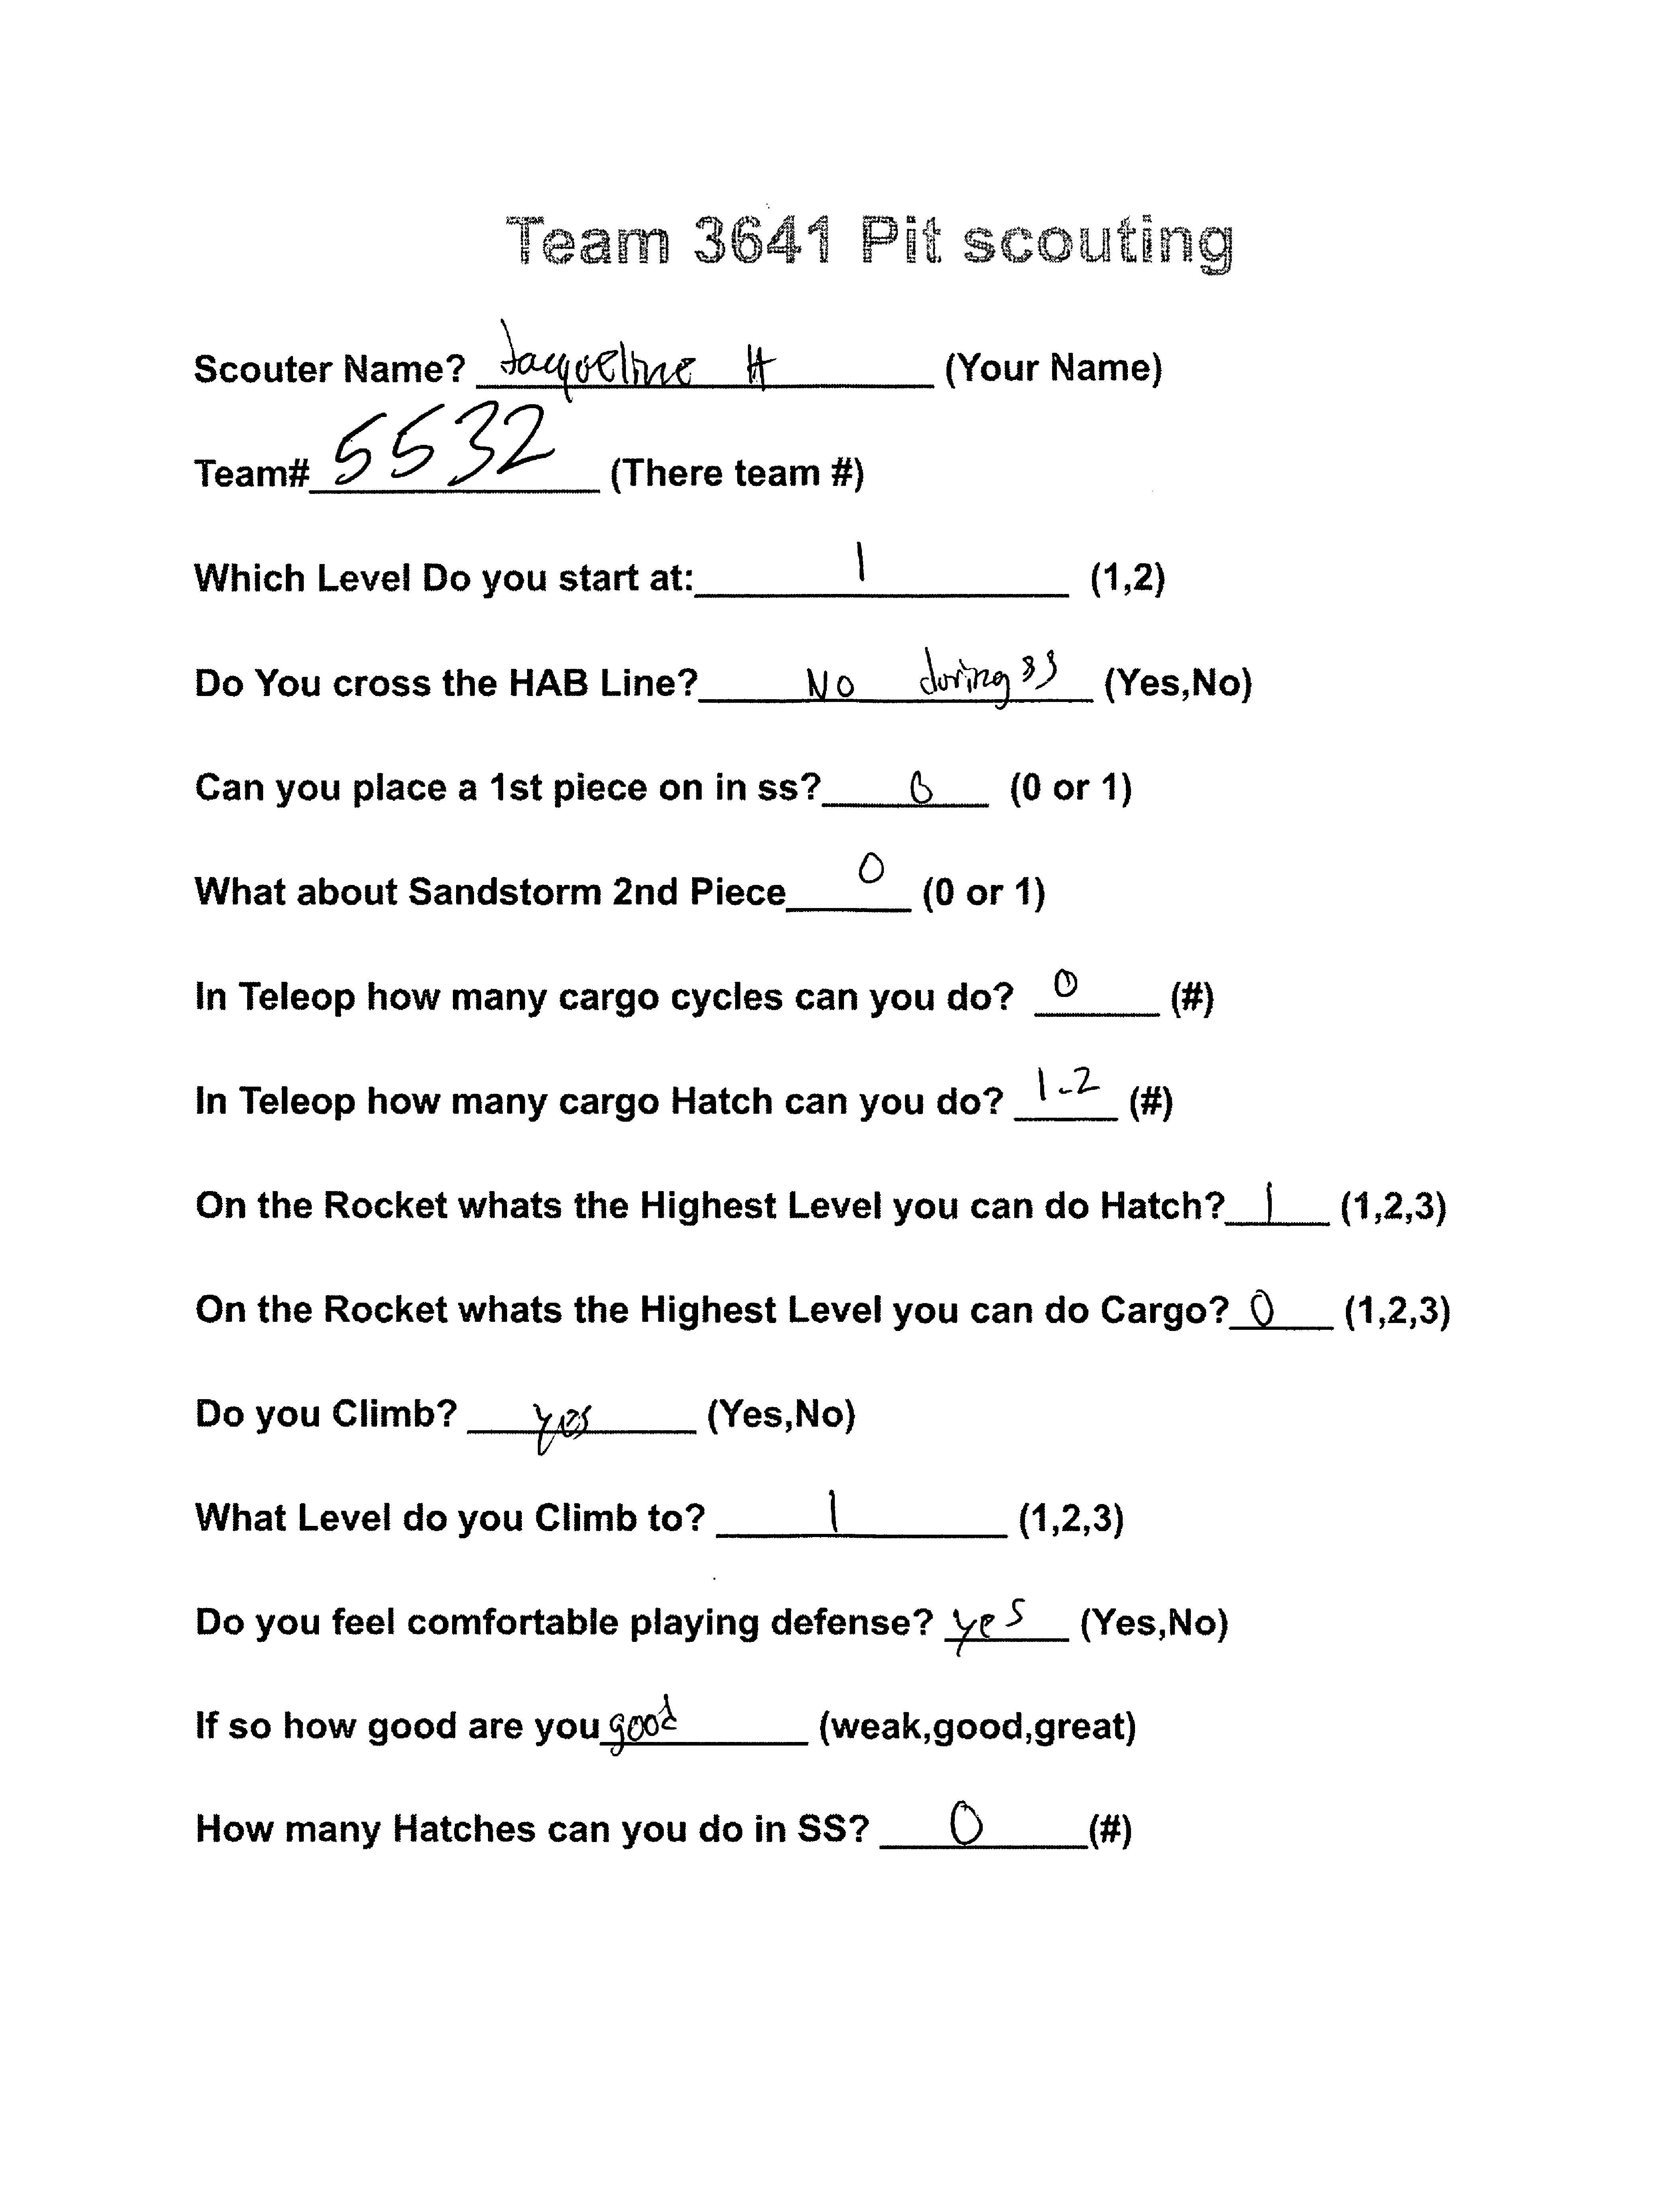 Team 3641 Pit scouting
Scouter Name? Jacqueline H (Your Name)
Team# 5532 (There team #)
Which Level Do you start at: 1 (1,2)
Do You cross the HAB Line? No during ss (Yes,No)
Can you place a 1st piece on in ss? 0 (0 or 1)
What about Sandstorm 2nd Piece 0 (0 or 1)
In Teleop how many cargo cycles can you do? 0 (#)
In Teleop how many cargo Hatch can you do? 1-2 (#)
On the Rocket whats the Highest Level you can do Hatch? 1 (1,2,3)
On the Rocket whats the Highest Level you can do Cargo? 0 (1,2,3)
Do you Climb? yes (Yes,No)
What Level do you Climb to? 1 (1,2,3)
Do you feel comfortable playing defense? yes (Yes,No)
If so how good are you good (weak,good,great)
How many Hatches can you do in SS? 0 (#)